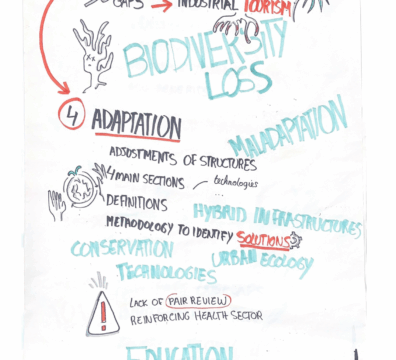 GAPS → INDUSTRIAL TOURISM
BIODIVERSITY
LOSS
4 ADAPTATION
MALADAPTATION
ADJUSTMENTS OF STRUCTURES
4 MAIN SECTIONS – technologies
...
DEFINITIONS
HYBRID INFRASTRUCTURES
METHODOLOGY TO IDENTIFY SOLUTIONS
CONSERVATION
URBAN ECOLOGY
TECHNOLOGIES
!
LACK OF PAIR REVIEW
REINFORCING HEALTH SECTOR
EDUCATION